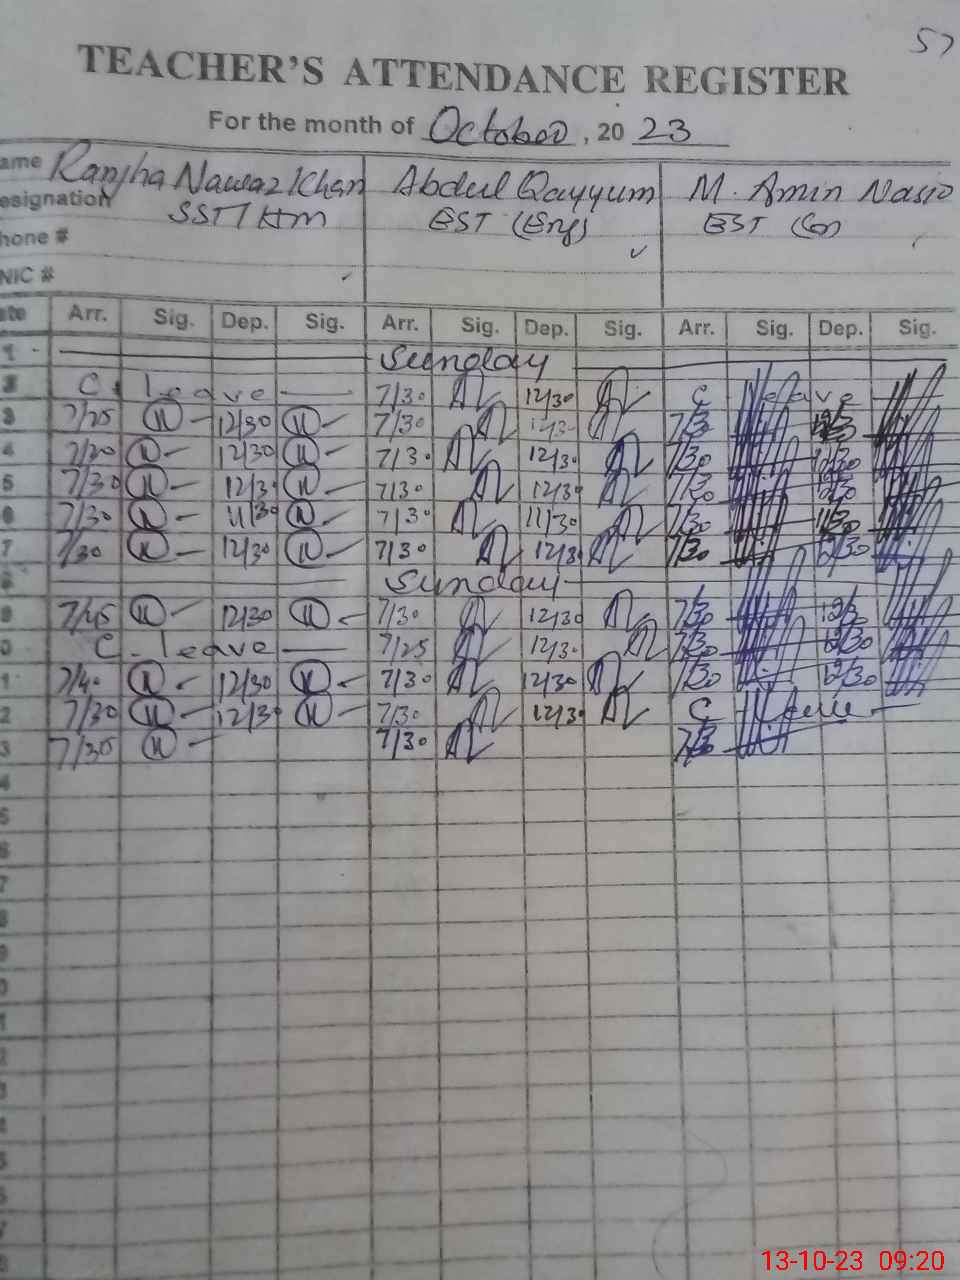 57
TEACHER'S ATTENDANCE REGISTER
For the month of October, 2023
ame Ranjha Nawaz Khan Abdul Qayyum M. Amin Nasir
esignation SST/HM EST (Eng) EST
hone #
NIC #
ate Arr. Sig. Dep. Sig. Arr. Sig. Dep. Sig. Arr. Sig. Dep. Sig.
1 Sunday
2 C. leave 7/30 12/30 C leave
3 7/25 12/30 7/30 12/30 7/30 12/30
4 7/20 12/30 7/30 12/30 7/30 12/30
5 7/30 12/30 7/30 12/30 7/30 12/30
6 7/30 11/30 7/30 11/30 7/30 11/30
7 7/30 12/30 7/30 12/30 7/30 12/30
Sunday
9 7/45 12/30 7/30 12/30 7/30 12/30
0 C. leave 7/25 12/30 7/30 12/30
1 7/40 12/30 7/30 12/30 7/30 12/30
2 7/30 12/30 7/30 12/30 C leave
3 7/30 7/30 7/30
4
5
6
7
8
9
0
1
2
3
4
5
6
7
8
13-10-23 09:20